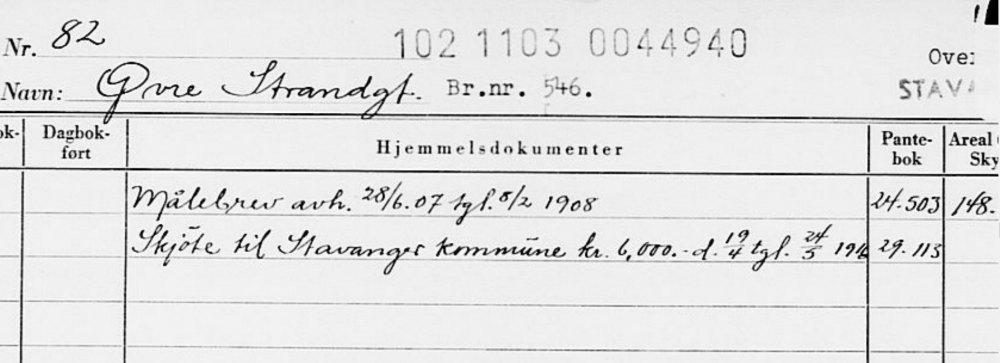 Nr. 82 102 1103 0044940
Navn: Øvre Strandgt. Br.nr. 546.
Dagbok-ført Hjemmelsdokumenter Pante-bok Areal
Målebrev avh. 28/6.07 tgl. 8/2 1908 24.503 148.
Skjöte til Stavanger kommune kr. 6,000.- d. 19/4 tgl. 24/5 29.113